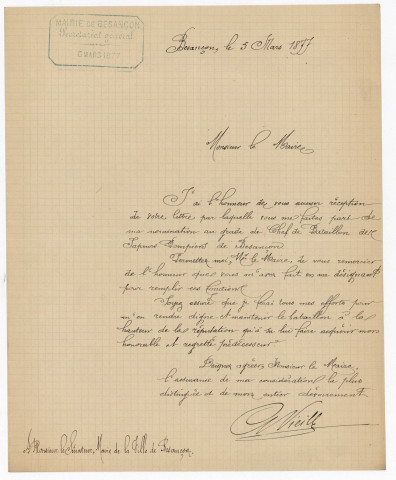 MAIRIE DE BESANÇON
Secrétariat général
Besançon, le 5 Mars 1877
Monsieur le Maire,
J'ai l'honneur de vous accuser réception
de votre lettre par laquelle vous me faites part de
ma nomination au grade de Chef de Bataillon des
Sapeurs-Pompiers de Besançon.
Permettez-moi, Mr le Maire, de vous remercier
de l'honneur que vous m'avez fait en me désignant
pour remplir ces fonctions.
Soyez assuré que je ferai tous mes efforts pour
m'en rendre digne et maintenir le bataillon à la
hauteur de la réputation qu'a su lui faire acquérir mon
honorable et regretté prédécesseur.
Daignez agréer, Monsieur le Maire,
l'assurance de ma considération la plus
distinguée et de mon entier dévouement.
Vieille
A Monsieur le Sénateur, Maire de la Ville de Besançon,